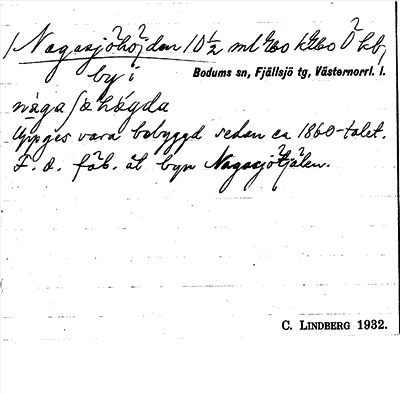 Nagasjöhöjden 10 ½ ml
by i
Bodums sn, Fjällsjö tg, Västernorrl. l.
Uppges vara bebyggd sedan ca 1860-talet.
F. d. fäb. åt byn Nagasjötjälen.
C. LINDBERG 1932.